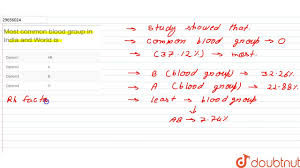 29656024
Most common blood group in
India and World is
AB
A
B
O
Rh facto
→ Study showed that
→ Common blood group → O
→ (37.12%) → most
→ B (blood group) → 32.26%
→ A (blood group) → 22.88%
→ least → blood group
↓
AB → 7.74%
doubtnut